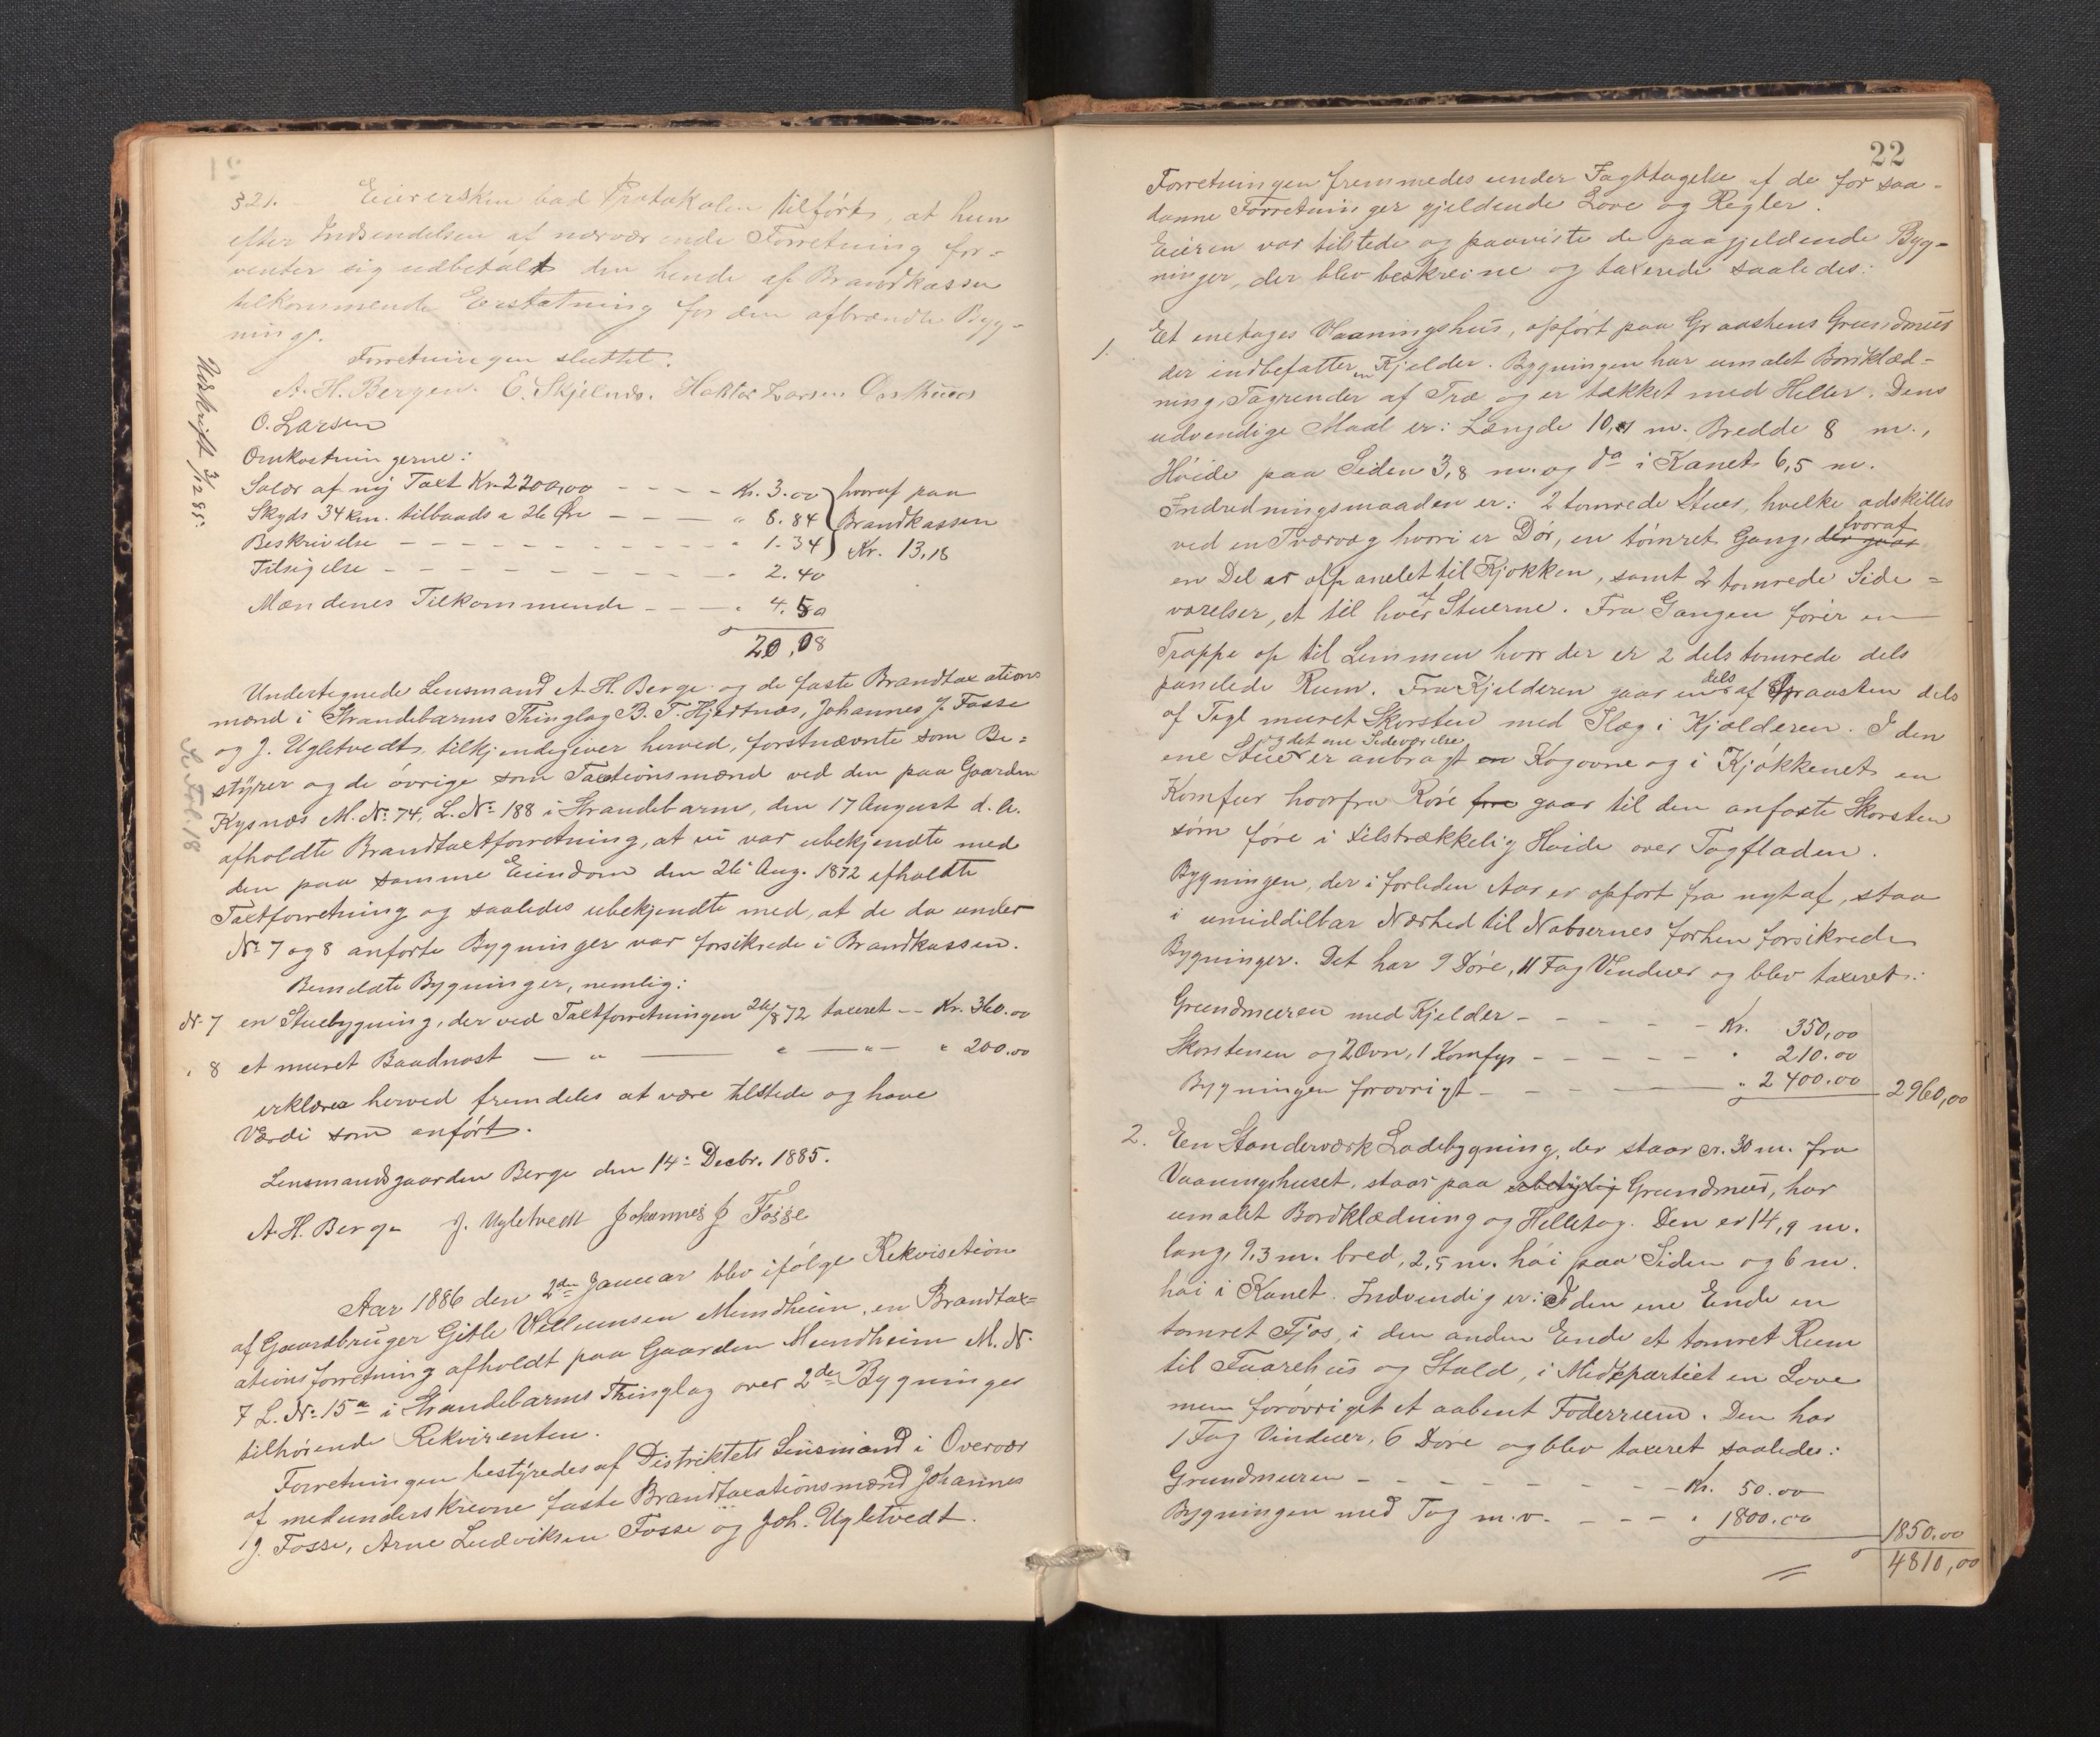 §21. Eierersken bad Protokolen tilført, at hun
efter Indsendelsen af nærværende Forretning for-
venter sig udbetalt den hende af Brandkassen
tilkommende Erstatning for den afbrændte Byg-
ning.
Forretningen sluttet.
A. H. Bergen. E. Skjelnæs. Haktor Larsen
O. Larsen
Udskrift 3/12 85.
Omkostningerne:
Salær af ny Taxt Kr. 2200,00 - - - - Kr. 3.00 hvoraf paa
Skyds 34 km. tilbaads a 26 Øre - - - " 8.84 Brandkassen
Beskrivelse - - - - - - - - " 1.34 Kr. 13,18
Tilsigelse - - - - - - - - " 2.40
Mændenes Tilkommende - - - " 4.50
20,08
Undertegnede Lensmand A. H. Berge og de faste Brandtaxations
mænd i Strandebarms Thinglag B. T. Hjertnæs, Johannes J. Fosse
og J. Ugletvedt, tilkjendegiver herved, førstnævnte som Be=
styrer og de øvrige som Taxtionsmænd ved den paa Gaarden
Kysnæs M. No. 74, L. No. 188 i Strandebarm, den 17 August d. A.
afholdte Brandtaxtforretning, at vi var ubekjendte med
den paa samme Eiendom den 26 Aug. 1872 afholdte
Taxtforretning og saaledes ubekjendte med, at de da under
No. 7 og 8 anførte Bygninger var forsikrede i Brandkassen.
Se Fol. 18
Bemeldte Bygninger, nemlig:
No. 7 en Stuebygning, der ved Taxtforretningen 26/8 72 taxeret -- Kr. 360.00
" 8 et muret Baadnøst — " — " — " — " 200.00
erklæres herved fremdeles at være tilstede og have
Værdi som anført.
Lensmandsgaarden Berge den 14. Decbr. 1885.
A. H. Berge J. Ugletvedt Johannes J Fosse
Aar 1886 den 2den Januar blev ifølge Rekvisition
af Gaardbruger Gitle Willumsen Mundheim, en Brandtax=
ationsforretning afholdt paa Gaarden Mundheim M. N.
7 L. No. 15a i Strandebarms Thinglag over 2de Bygninger
tilhørende Rekvirenten.
Forretningen bestyredes af Distriktets Lensmand i Overvær
af medunderskrevne faste Brandtaxationsmænd Johannes
J. Fosse, Arne Ludviksen Fosse og Joh. Ugletvedt.
22
Forretningen fremmedes under Iagttagelse af de for saa-
danne Forretninger gjeldende Love og Regler.
Eieren var tilstede og paaviste de paagjeldende Byg-
ninger, der blev beskrevne og taxerede saaledes:
1. Et enetages Vaaningshus, opført paa Graastens Grundmur
der indbefatter en Kjelder. Bygningen har umalet Bordklæd-
ning, Tagrender af Træ og er tækket med Heller. Dens
udvendige Maal er: Længde 10,1 m. Bredde 8 m.,
Høide paa Siden 3,8 m. og do i Kanet 6,5 m.
Indredningsmaaden er: 2 tømrede Stuer, hvilke adskilles
ved en Tværvæg hvori er Dør, en tømret Gang, der gaar hvoraf
en Del er afpanelet til Kjøkken, samt 2 tømrede Side=
værelser, et til hver af Stuerne. Fra Gangen fører en
Trappe op til Lemmen hvor der er 2 dels tømrede dels
panelede Rum. Fra Kjelderen gaar en dels af Graasten dels
af Tegl muret Skorsten med Slag i Kjælderen. I den
ene Stue og det ene Sideværelse er anbragt en Kogovne og i Kjøkkenet en
Komfur hvorfra Røre føre gaar til den anførte Skorsten
som føre i tilstrækkelig Høide over Tagfladen.
Bygningen, der i forleden Aar er opført fra nyt af, staa
i umiddelbar Nærhed til Naboernes forhen forsikrede
Bygninger. Det har 9 Døre, 11 Fag Vinduer og blev taxeret:
Grundmuren med Kjelder - - - - - Kr. 350,00
Skorstenen og 2 Ovn, 1 Komfyr - - - - - " 210.00
Bygningen forøvrigt - - - — " 2400.00 2960,00
2. En Standerværk Ladebygning, der staar cr. 30 m. fra
Vaaningshuset, staar paa ubetydelig Grundmur, har
umalet Bordklædning og Helletag. Den er 14,9 m.
lang, 9,3 m. bred, 2,5 m. høi paa Siden og 6 m.
høi i Kanet. Indvendig er: I den ene Ende en
tømret Fjøs, i den anden Ende et tømret Rum
til Faarehus og Stald, i Midtpartiet en Love
men forøvriget et aabent Foderrum. Den har
1 Fag Vinduer, 6 Døre og blev taxeret saaledes:
Grundmuren - - - - - - - Kr. 50.00
Bygningen med Tag m.v. - - - " 1800.00 1850.00
4810,00